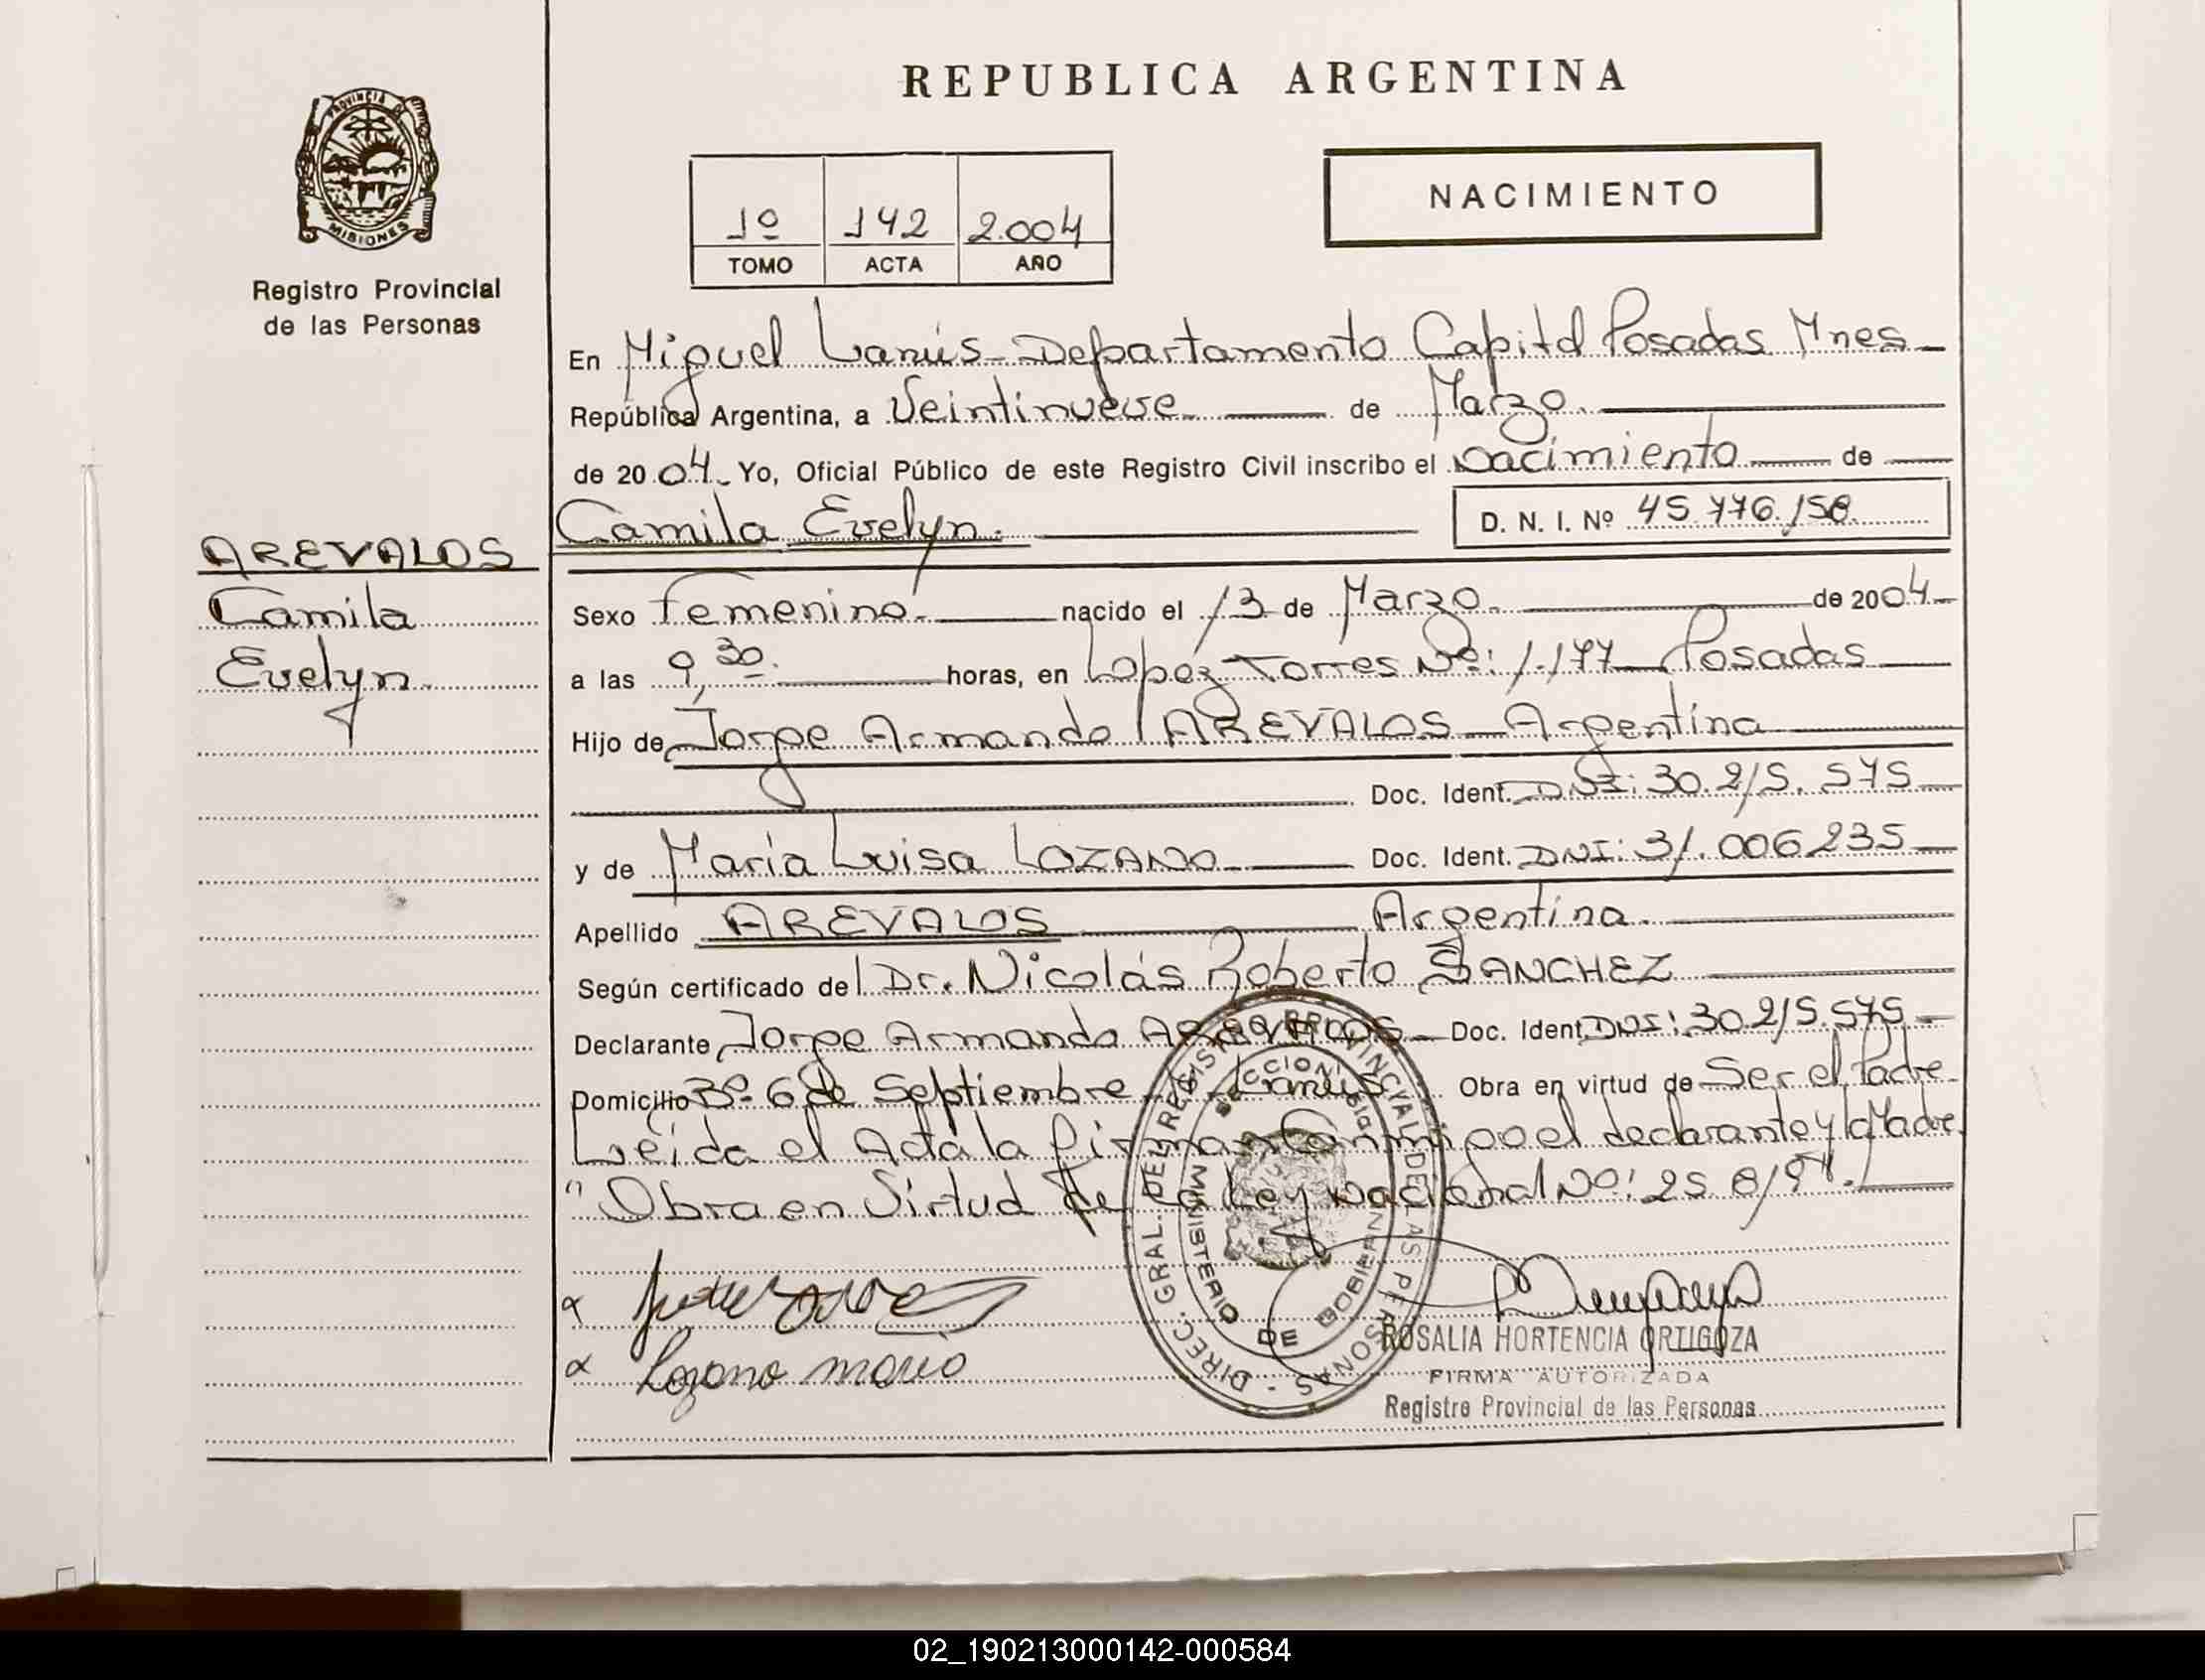 REPUBLICA ARGENTINA
PROVINCIA DE
MISIONES
Registro Provincial
de las Personas
1º 142 2.004
TOMO ACTA AÑO
NACIMIENTO
En Miguel Lanús - Departamento Capital Posadas Mnes
República Argentina, a Veintinueve de Marzo
de 2004. Yo, Oficial Público de este Registro Civil inscribo el Nacimiento de
Camila Evelyn. D. N. I. Nº 45.776.158
AREVALOS
Camila
Evelyn
Sexo Femenino. nacido el 13 de Marzo. de 2004
a las 9,30. horas, en Lopez Torres Nº: 1.177 Posadas
Hijo de Jorge Armando AREVALOS Argentina
Doc. Ident. DNI: 30.215.575
y de María Luisa LOZANO Doc. Ident. DNI: 31.006235
Apellido AREVALOS Argentina.
Según certificado del Dr. Nicolás Roberto SANCHEZ
Declarante Jorge Armando AREVALOS Doc. Ident. DNI: 30.215.575
Domicilio Bº 6 de Septiembre Lanús Obra en virtud de Ser el Padre
Leída el Acta la firman Conmigo el declarante y la Madre
"Obra en Virtud de la Ley Nacional Nº: 25.819".
DIREC. GRAL. DEL REGISTRO PROVINCIAL DE LAS PERSONAS -
MINISTERIO DE GOBIERNO
Lozano maria
ROSALIA HORTENCIA ORTIGOZA
FIRMA AUTORIZADA
Registro Provincial de las Personas
02_190213000142-000584